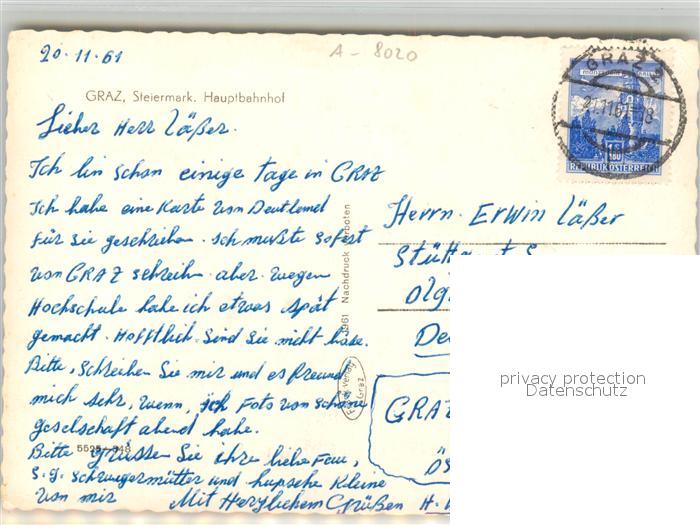 20·11·61
A - 8020
GRAZ, Steiermark. Hauptbahnhof
GRAZ 2
21.11.61-8
1.80
REPUBLIK ÖSTERREICH
Lieber Herr Läßer.
Ich bin schon einige Tage in GRAZ
Ich habe eine Karte von Deutlend
für Sie geschrieben. Ich mußte sofort
von GRAZ schreiben aber wegen
Hochschule habe ich etwas spät
gemacht. Hofftlich Sind Sie nicht böse.
Bitte, Schreiben Sie mir und es freund
mich sehr, wenn, ich Foto von schöne
geselschaft abend habe.
Bitte grüssen Sie ihre liebe Frau,
S. g. Schwiegermütter und hupsche Kleine
von mir Mit Herzlichem Grüßen H.
5595/348
1961 Nachdruck verboten
Verlag
Graz
Herrn. Erwin Läßer
Stüttgart S
Olg
De
GRAZ
ÖS
privacy protection
Datenschutz